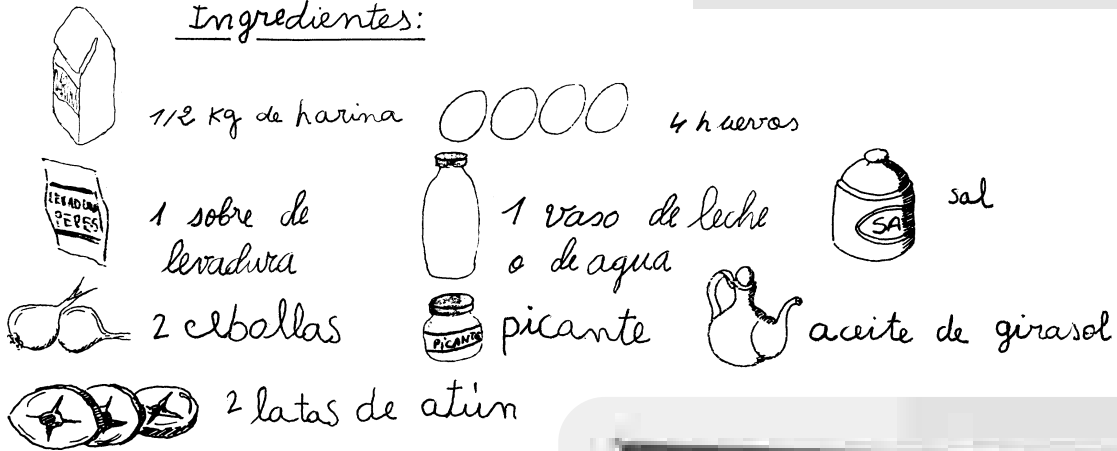 Ingredientes:
1/2 kg de harina
4 huevos
LEVADURA
1 sobre de
levadura
1 vaso de leche
o de agua
SAL
sal
2 cebollas
PICANTE
picante
aceite de girasol
2 latas de atún